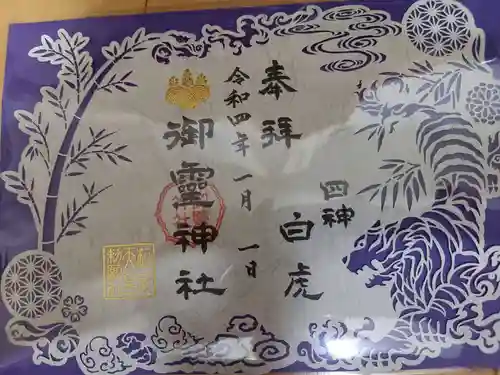 奉拝
四神
白虎
令和四年一月一日
御霊神社